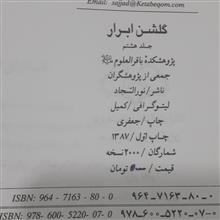 Email: sajjad@Ketabeqom.com
گلشن ابرار
جلد هشتم
پژوهشکده باقرالعلوم
جمعی از پژوهشگران
ناشر/نورالسّجاد
لیتوگرافی/کمیل
چاپ/جعفری
چاپ اوّل/۱۳۸۷
شمارگان/۲۰۰۰نسخه
قیمت/ تومان
ISBN: 964 - 7163 - 80 - 0 ۹۶۴-۷۱۶۳-۸۰-۰
ISBN: 978 - 600 - 5220 - 07- 0 ۹۷۸-۶۰۰-۵۲۲۰-۰۷-۰